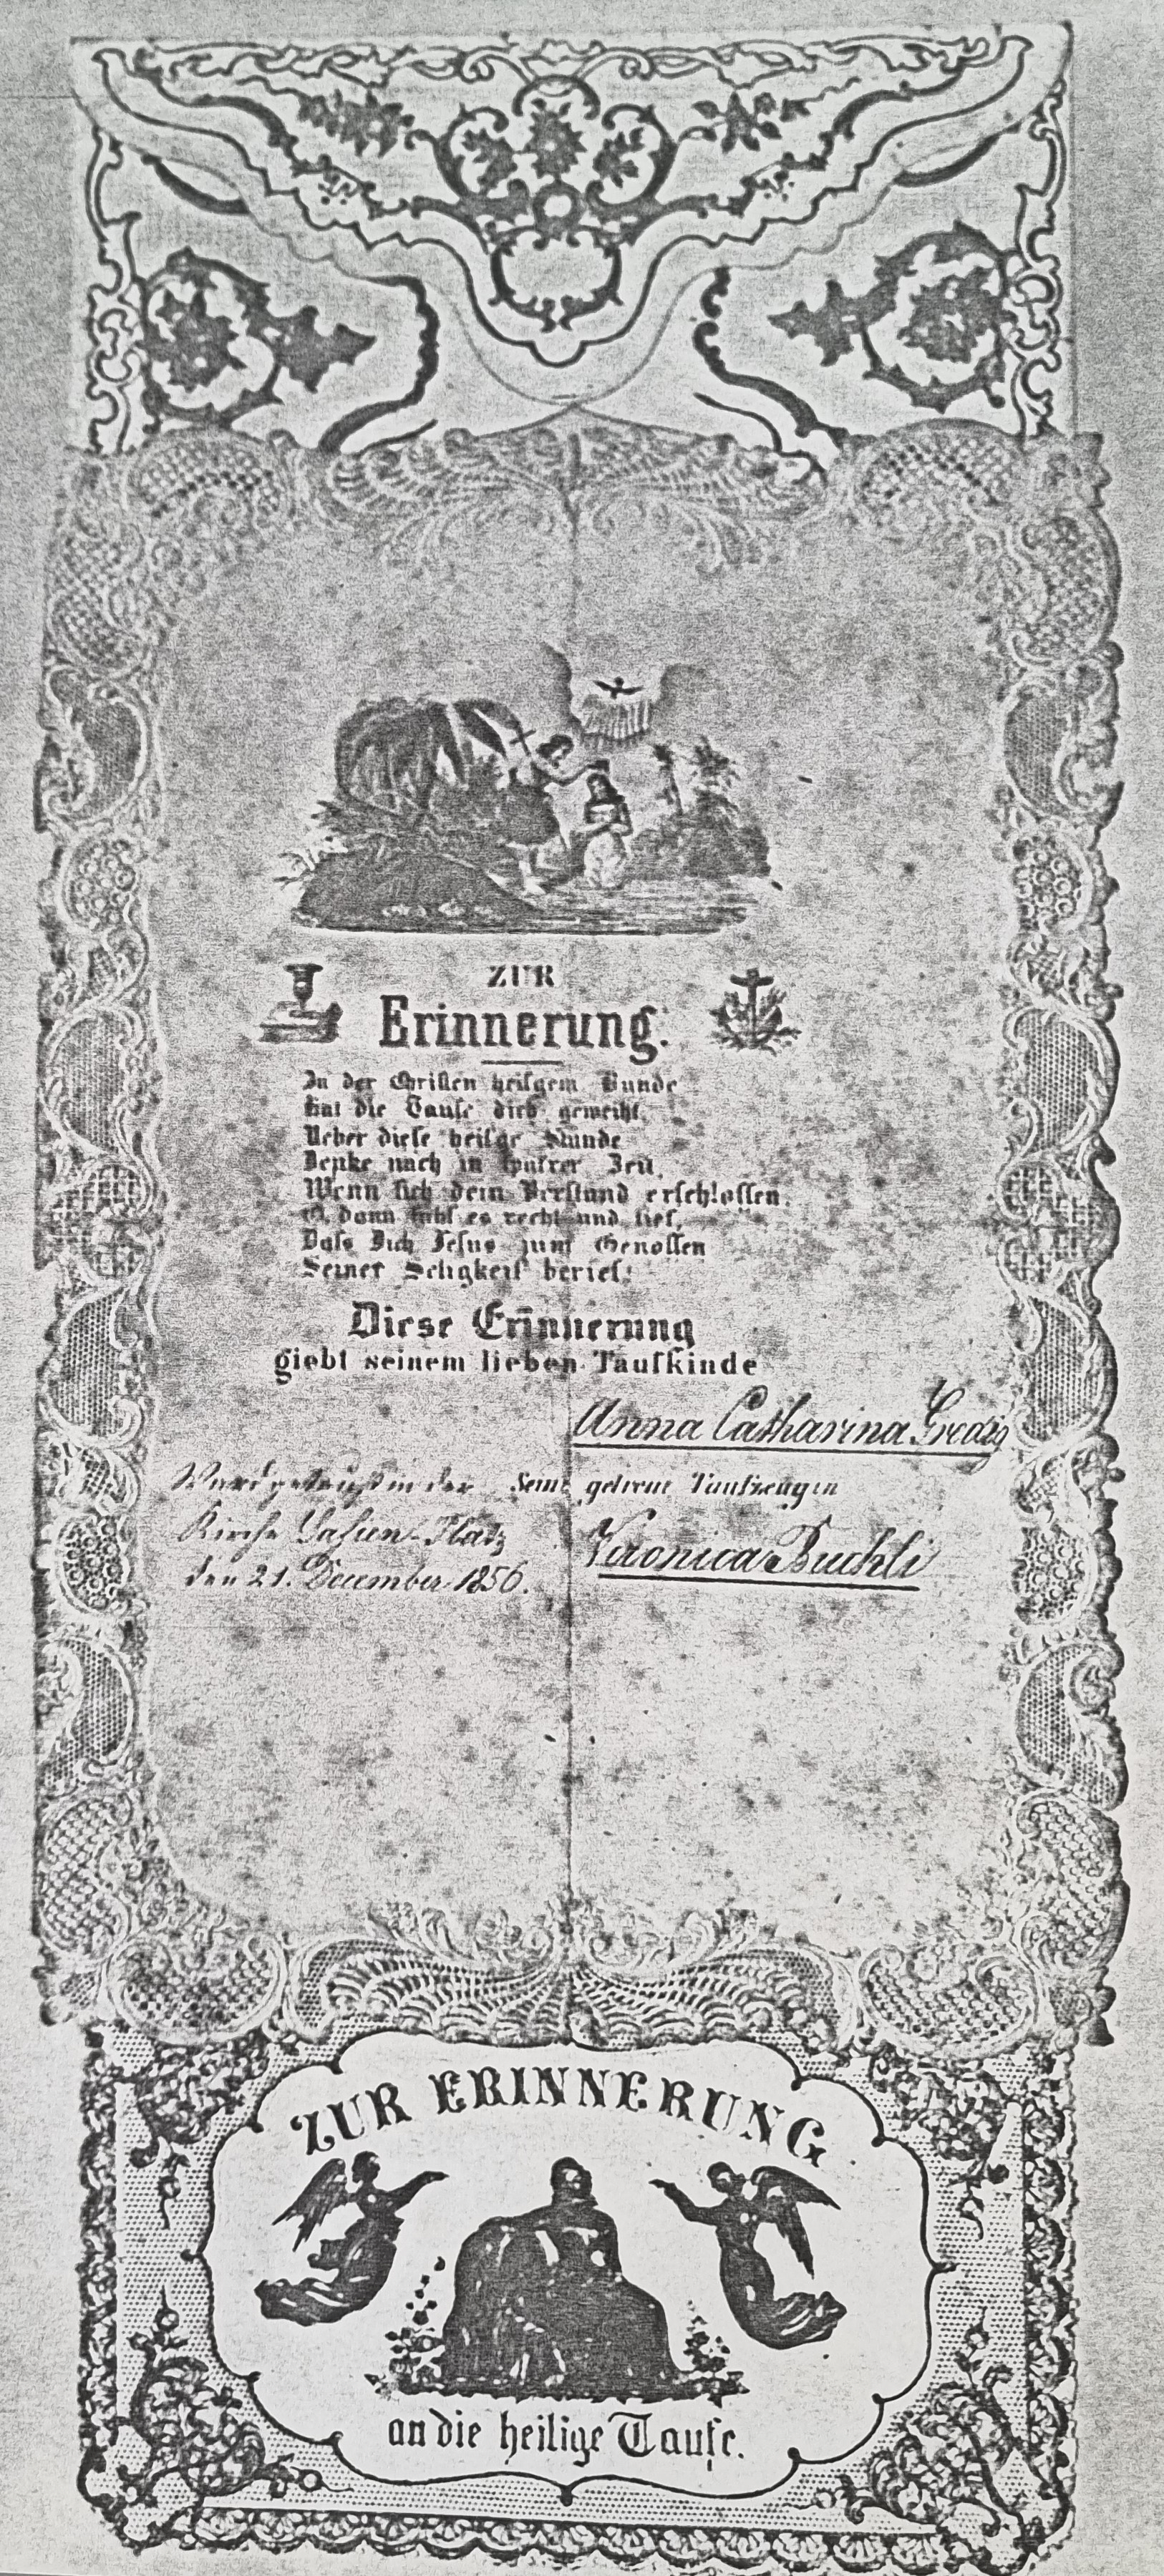 ZUR
Erinnerung.
In der Christen heilgem Bunde
hat die Taufe dich geweiht.
Ueber diese heilge Stunde
Denke nach in spätrer Zeit.
Wenn sich dein Verstand erschlossen.
O, dann fühl es recht und tief,
Dass Dich Jesus zum Genossen
Seiner Seligkeit berief!
Diese Erinnerung
giebt seinem lieben Taufkinde
Anna Catharina Gredig
Ward getauft in der
Kirche Safien-Platz
den 21. December 1856.
Seine getreue Taufzeugin
Veronica Buchli
ZUR ERINNERUNG
an die heilige Taufe.